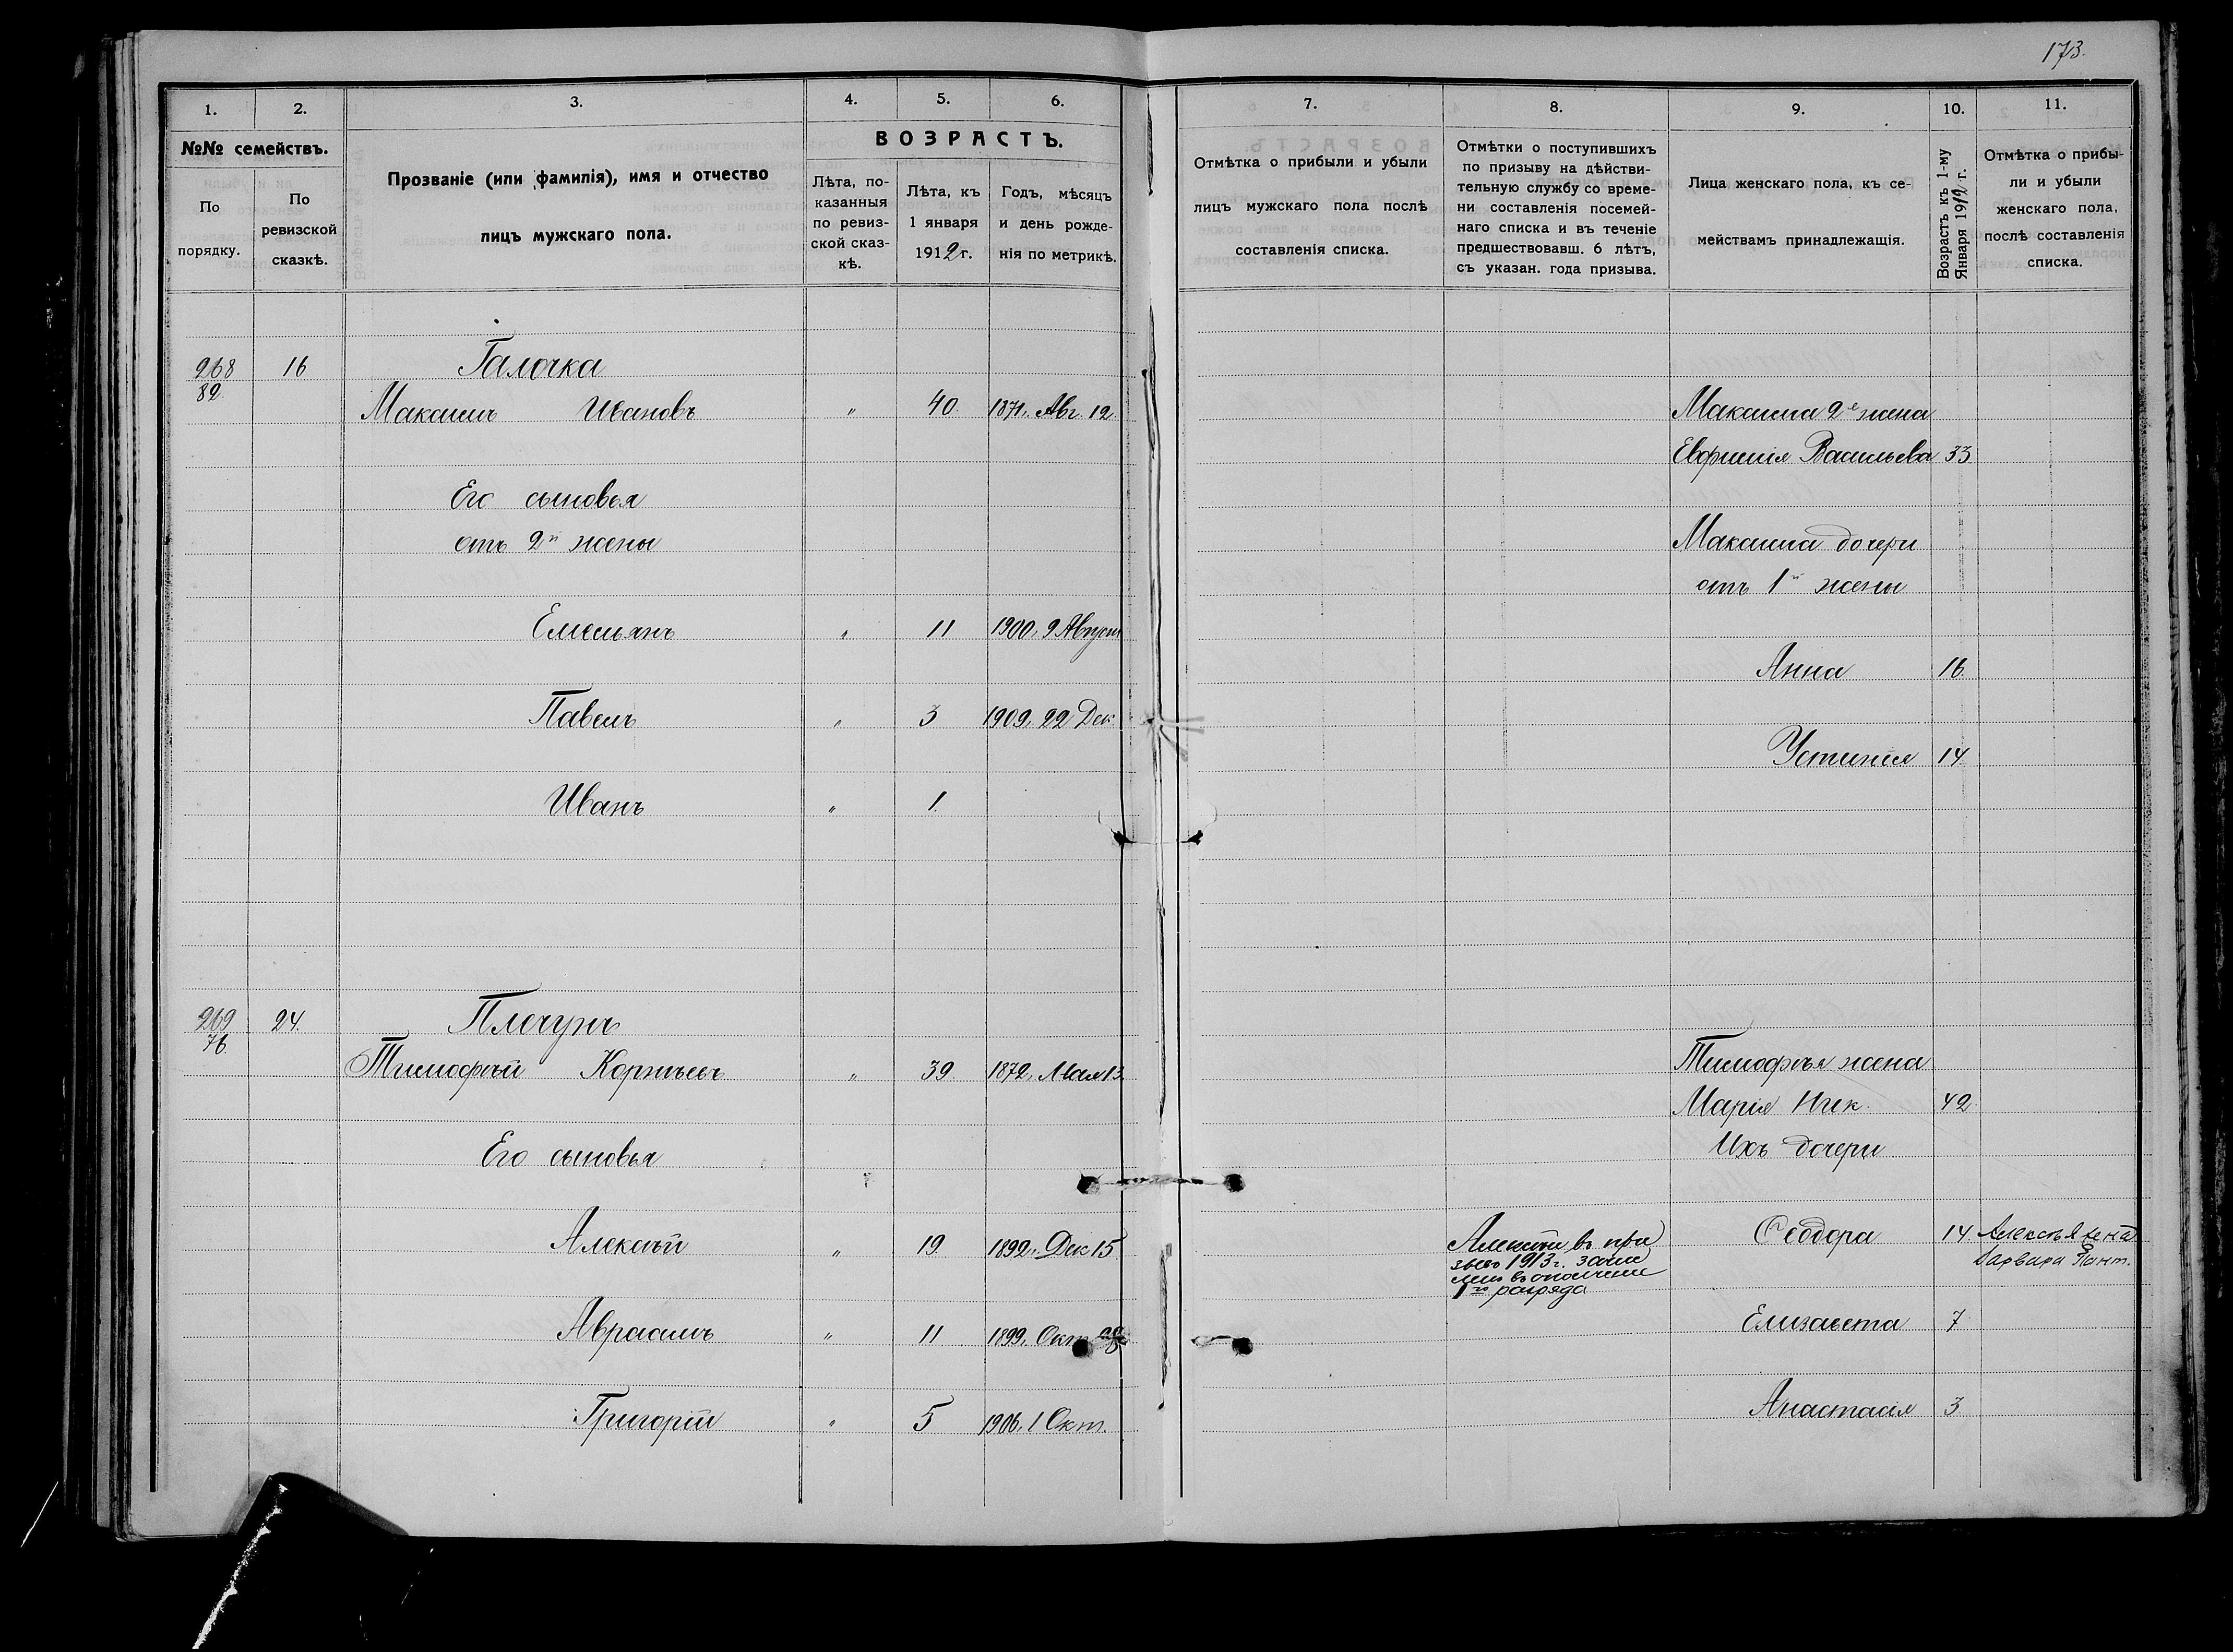 173.
1.
2.
3.
4.
5.
6.
№№ семействъ.
По порядку.
По ревизской сказкѣ.
Прозваніе (или фамилія), имя и отчество
лицъ мужскаго пола.
ВОЗРАСТЪ.
Лѣта, по-
казанныя
по ревиз-
ской сказ-
кѣ.
Лѣта, къ
1 января
1912 г.
Годъ, мѣсяцъ
и день рожде-
нія по метрикѣ.
268 16 Галочка
82.
Максимъ Ивановъ " 40. 1871. Авг. 12.
Его сыновья
отъ 2й жены
Емельянъ " 11 1900, 9 Август
Павелъ " 3 1909, 22 Дек.
Иванъ " 1.
269 24. Плечунъ
76.
Тимофѣй Корнѣевъ " 39. 1872, Мая 13.
Его сыновья
Алексѣй " 19. 1892, Дек 15.
Авраамъ " 11 1899, Окт
Григорій " 5 1906, 1 Окт.
7.
8.
9.
10.
11.
Отмѣтка о прибыли и убыли
лицъ мужскаго пола послѣ
составленія списка.
Отмѣтки о поступившихъ
по призыву на дѣйстви-
тельную службу со време-
ни составленія посемей-
наго списка и въ теченіе
предшествовавш. 6 лѣтъ,
съ указан. года призыва.
Лица женскаго пола, къ се-
мействамъ принадлежащія.
Возрастъ къ 1-му
Января 1912 г.
Отмѣтка о прибы-
ли и убыли
женскаго пола,
послѣ составленія
списка.
Максима 2я жена
Евфимія Васильева 33
Максима дочери
отъ 1й жены
Анна 16.
Устинія 14
Тимофѣя жена
Марія Ник. 42
Ихъ дочери
Ѳеодора 14
Алексѣй въ при
зывъ 1913 г. зачис
ленъ въ ополченіе
1го разряда
Алексѣя жена
Варвара Пант.
Елизавета 7
Анастасія 3